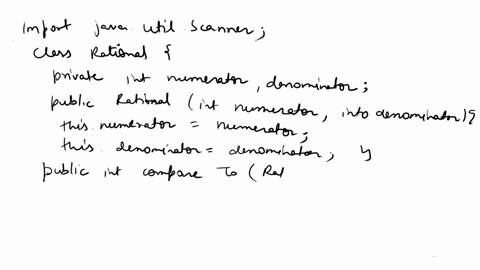 Import java util Scanner;
class Rational {
private int numerator, denominator;
public Rational (int numerator, into denominator){
this. numerator = numerator;
this. denominator = denominator; }
public int compare To ( Rat